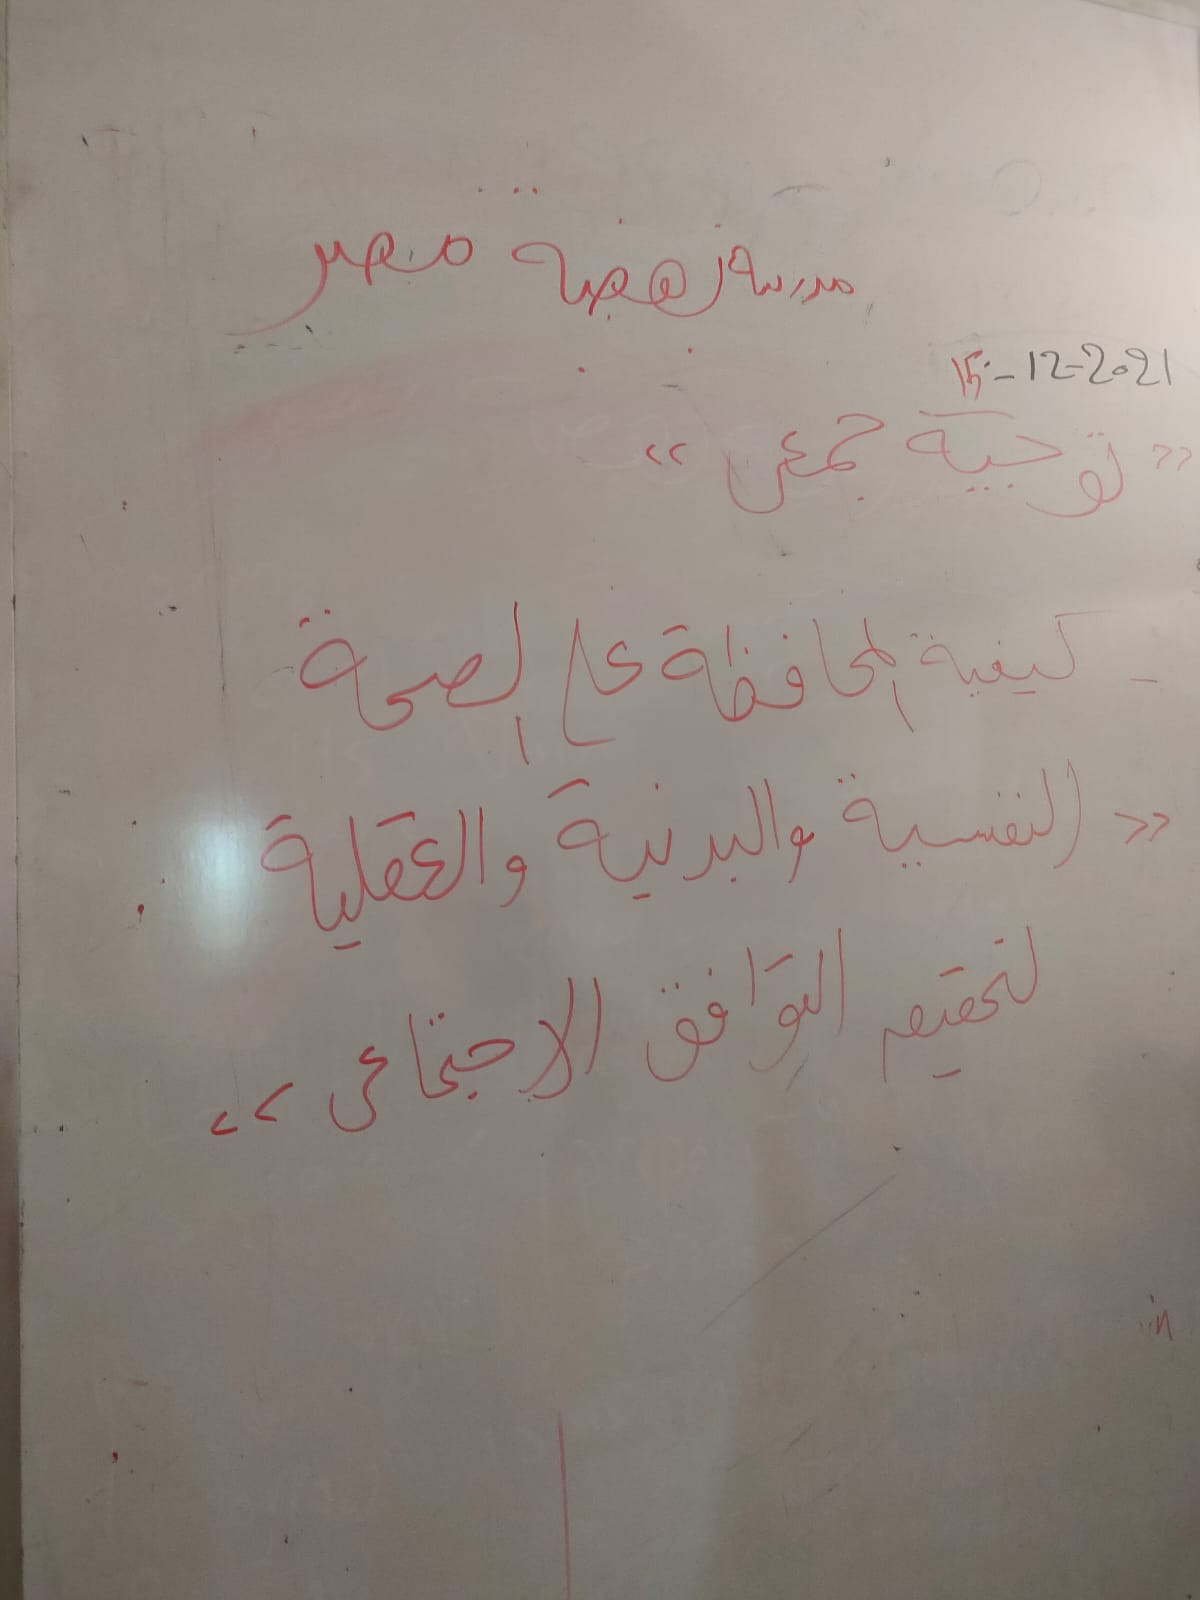 مدرسة نهضة مصر
15-12-2021
« توجية جمعى »
- كيفية المحافظة على الصحة
« النفسية والبدنية والعقلية
لتحقيق التوافق الاجتماعى »